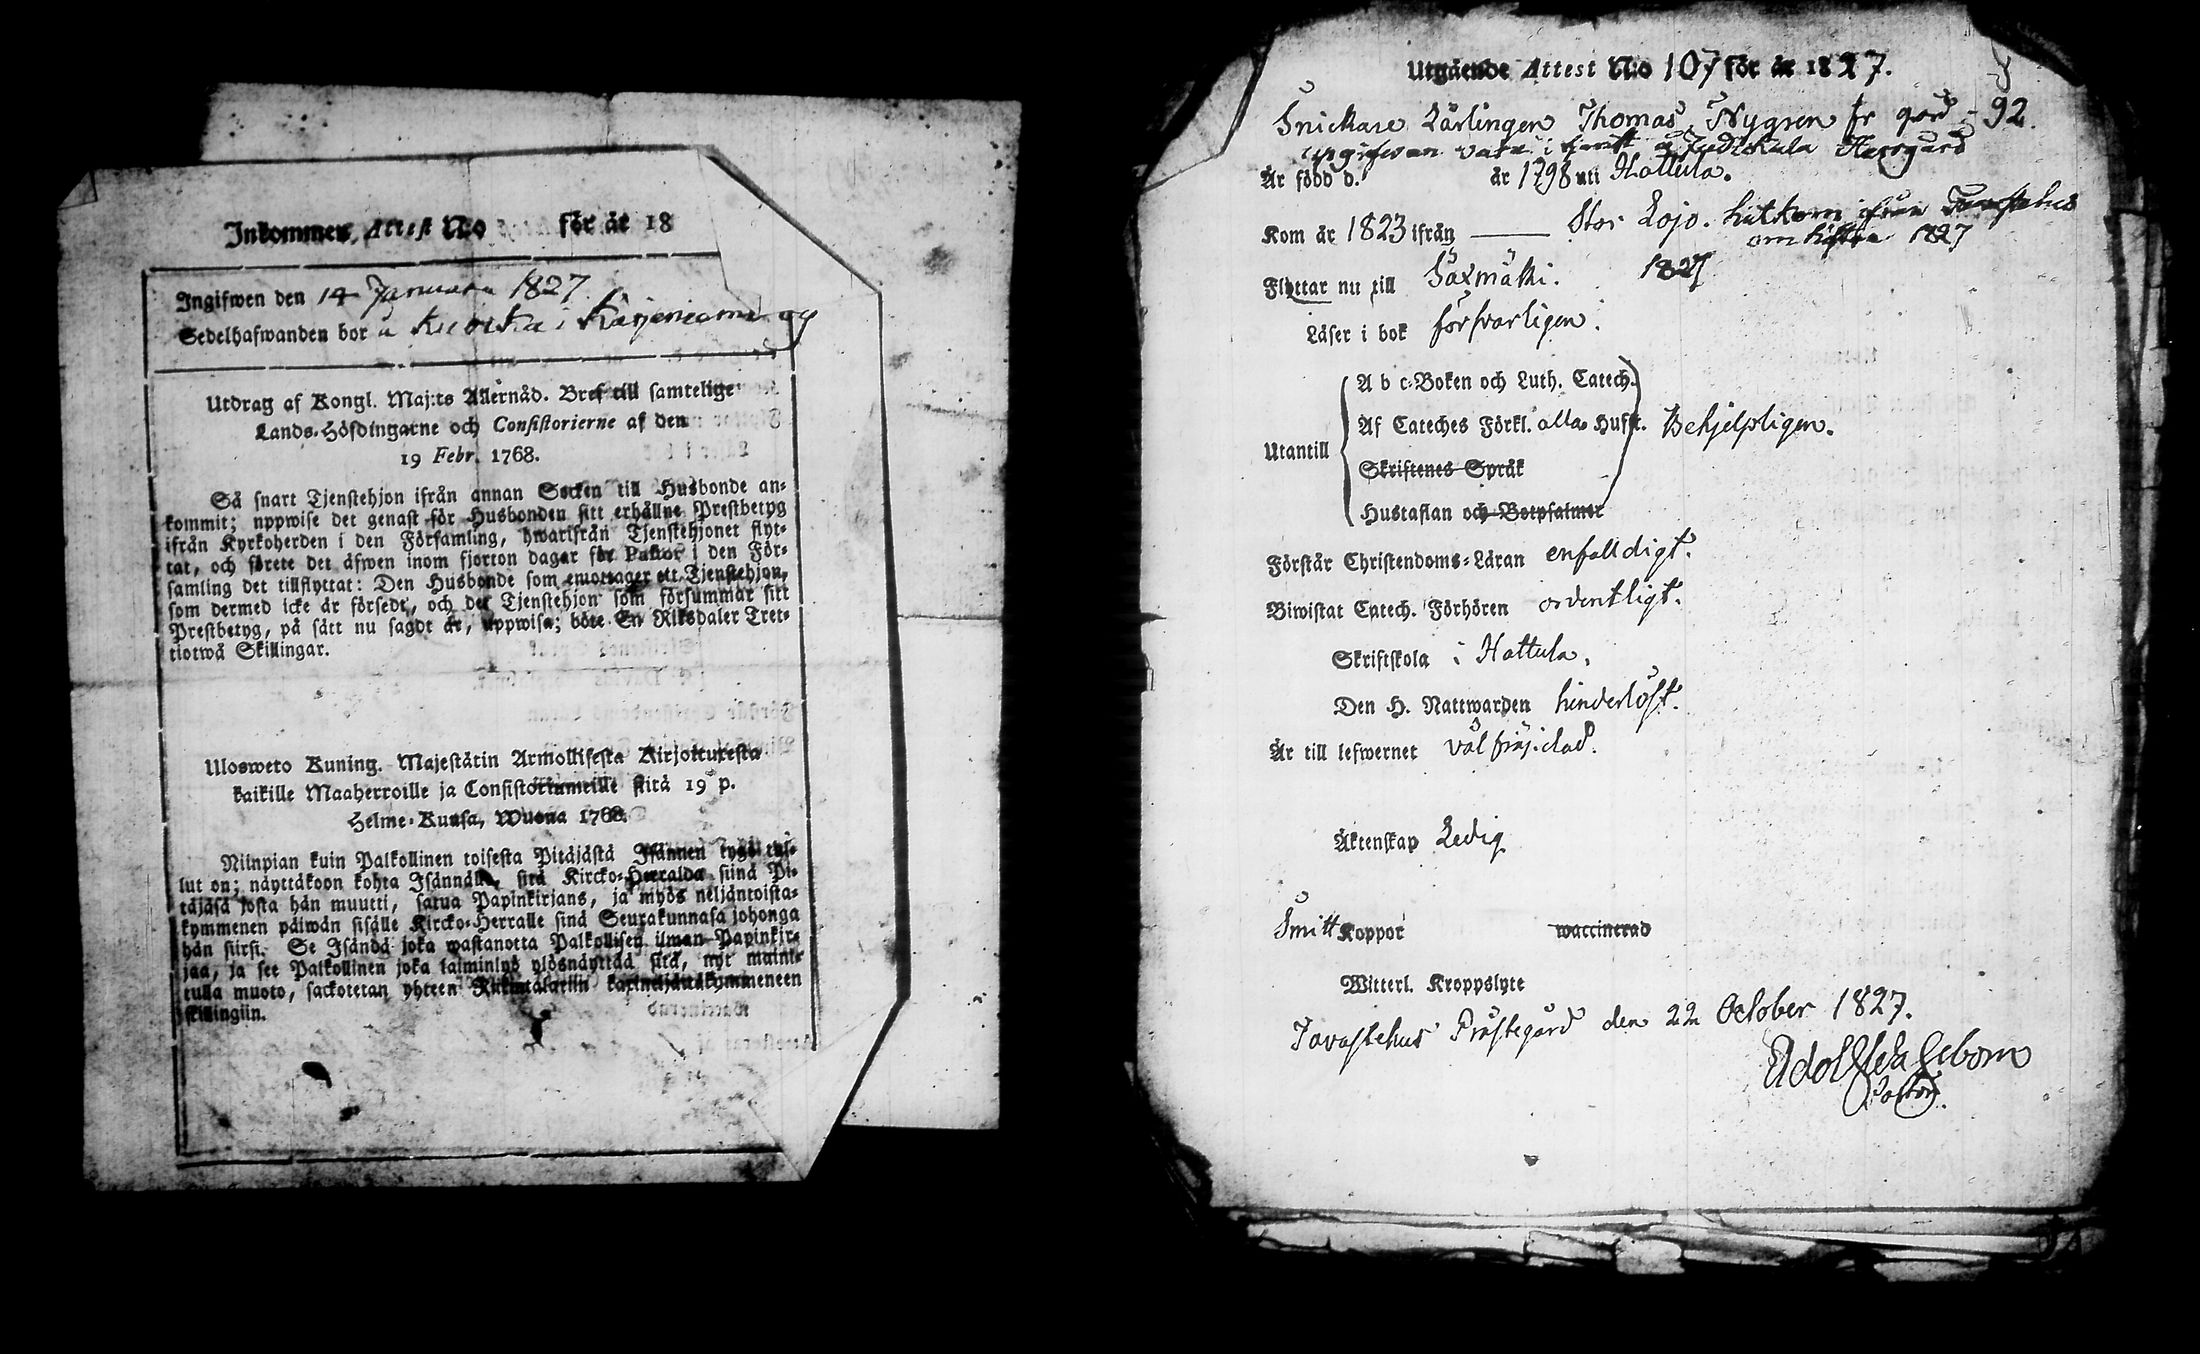 Inkommen Attest No för år 18
Ingifwen den 14 Januari 1827
Sedelhafwanden bor å i
Utdrag af Kongl. Maj:ts Allernåd. Bref till samtelige
Lands-Höfdingarne och Consistorierne af den
19 Febr. 1768.
Så snart Tjenstehjon ifrån annan Socken till Husbonde an-
kommit; uppwise det genast för Husbonden sitt erhållne Prestbetyg
ifrån Kyrkoherden i den Församling, hwarifrån Tjenstehjonet flyt-
tat, och förete det äfwen inom fjorton dagar för Pastor i den För-
samling det tillflyttat: Den Husbonde som emottager ett Tjenstehjon,
som dermed icke är försedt, och det Tjenstehjon som försummar sitt
Prestbetyg, på sätt nu sagdt är, uppwisa; böte En Riksdaler Tret-
tiotwå Skillingar.
Ulosweto Kuning. Majestätin Armollisesta Kirjoituxesta
kaikille Maaherroille ja Consistoriumeille siitä 19 p.
Helme-Kuusa, Wuona 1768.
Niinpian kuin Palkollinen toisesta Pitäjästä Isännen tygö tul-
lut on; näyttäkoon kohta Isännälle, sitä Kircko-Herralda siinä Pi-
täjäsä josta hän muutti, saatua Papinkirjans, ja myös neljäntoista-
kymmenen päiwän sisälle Kircko-Herralle sinä Seurakunnasa johonga
hän siirsi. Se Isändä joka wastanotta Palkollisen ilman Papinkir-
jaa, ja see Palkollinen joka laiminlyö ylösnäyttää sitä, nyt mainit-
tulla muoto, sackotetan yhteen Rikintalariin kaxineljättäkymmeneen
skillingiin.
Utgående Attest No 107 för år 1827.
Snickare Lärlingen Thomas Nygren fr gård - 92.
upgifwen vara i å Herrgård
Är född d. år 1798 uti Hattula.
Kom år 1823 ifrån Stor Lojo. hitkom ifrån Tavastehus
om hösten 1827
Flyttar nu till Säxmäki. 1827
Läser i bok försvarligen.
A b c-Boken och Luth. Catech.
Af Cateches Förkl. alla Hufst. Behjelpligen.
Utantill
Skriftenes Språk
Hustaflan och Botpsalmer
Förstår Christendoms-Läran enfaldigt.
Biwistat Catech. Förhören ordentligt.
Skriftskola i Hattula.
Den H. Nattwarden hinderlöst.
Är till lefwernet väl fräjdad.
Äktenskap Ledig
Smitt Koppor waccinerad
Witterl. Kroppslyte
Tavastehus Prästegård den 22 October 1827.
Adolf
Pastor.